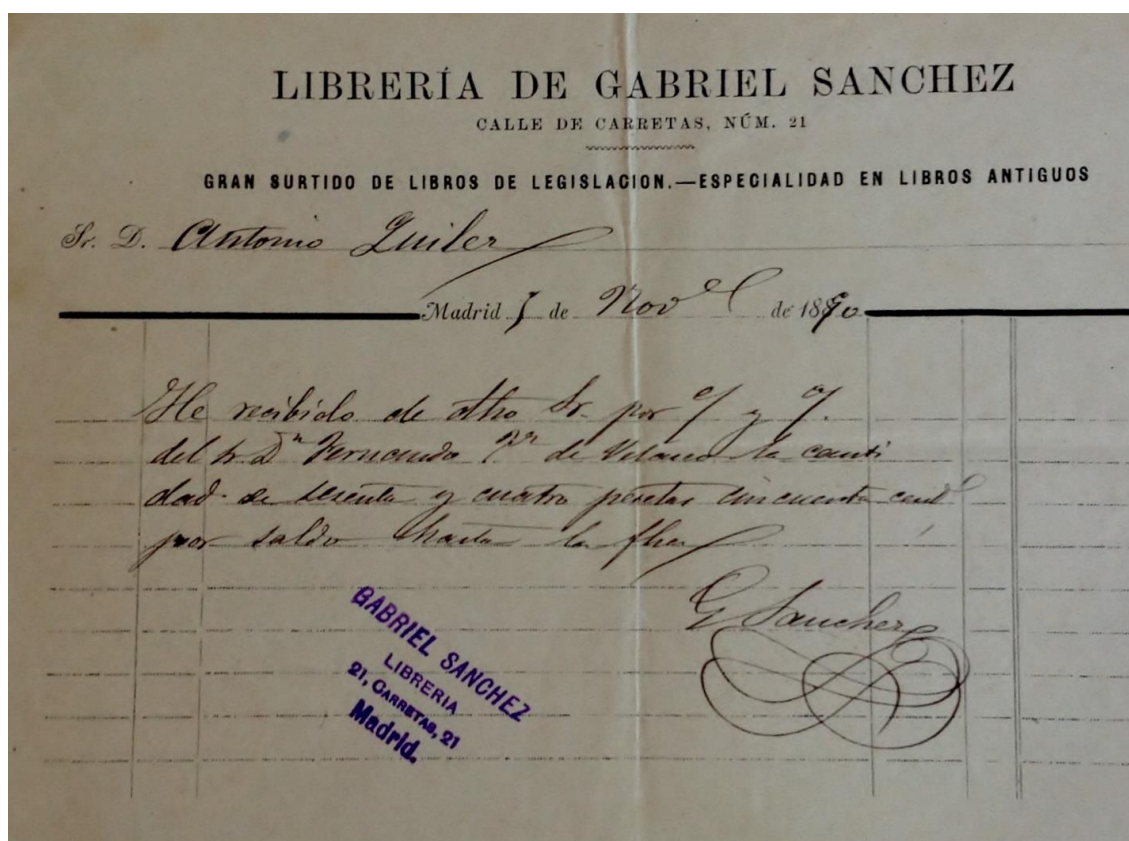 LIBRERÍA DE GABRIEL SANCHEZ
CALLE DE CARRETAS, NÚM. 21
GRAN SURTIDO DE LIBROS DE LEGISLACION.—ESPECIALIDAD EN LIBROS ANTIGUOS
Sr. D. Antonio Quiler
Madrid de Nov de 1890
He recibido de dho Sr. por y
del Sr. Dn Fernando de Velasco la canti
dad de sesenta y cuatro pesetas cincuenta cent
por saldo hasta la fha
G Sanchez
GABRIEL SANCHEZ
LIBRERIA
21, CARRETAS, 21
Madrid.